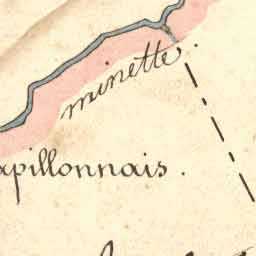 minette.
apillonnais.